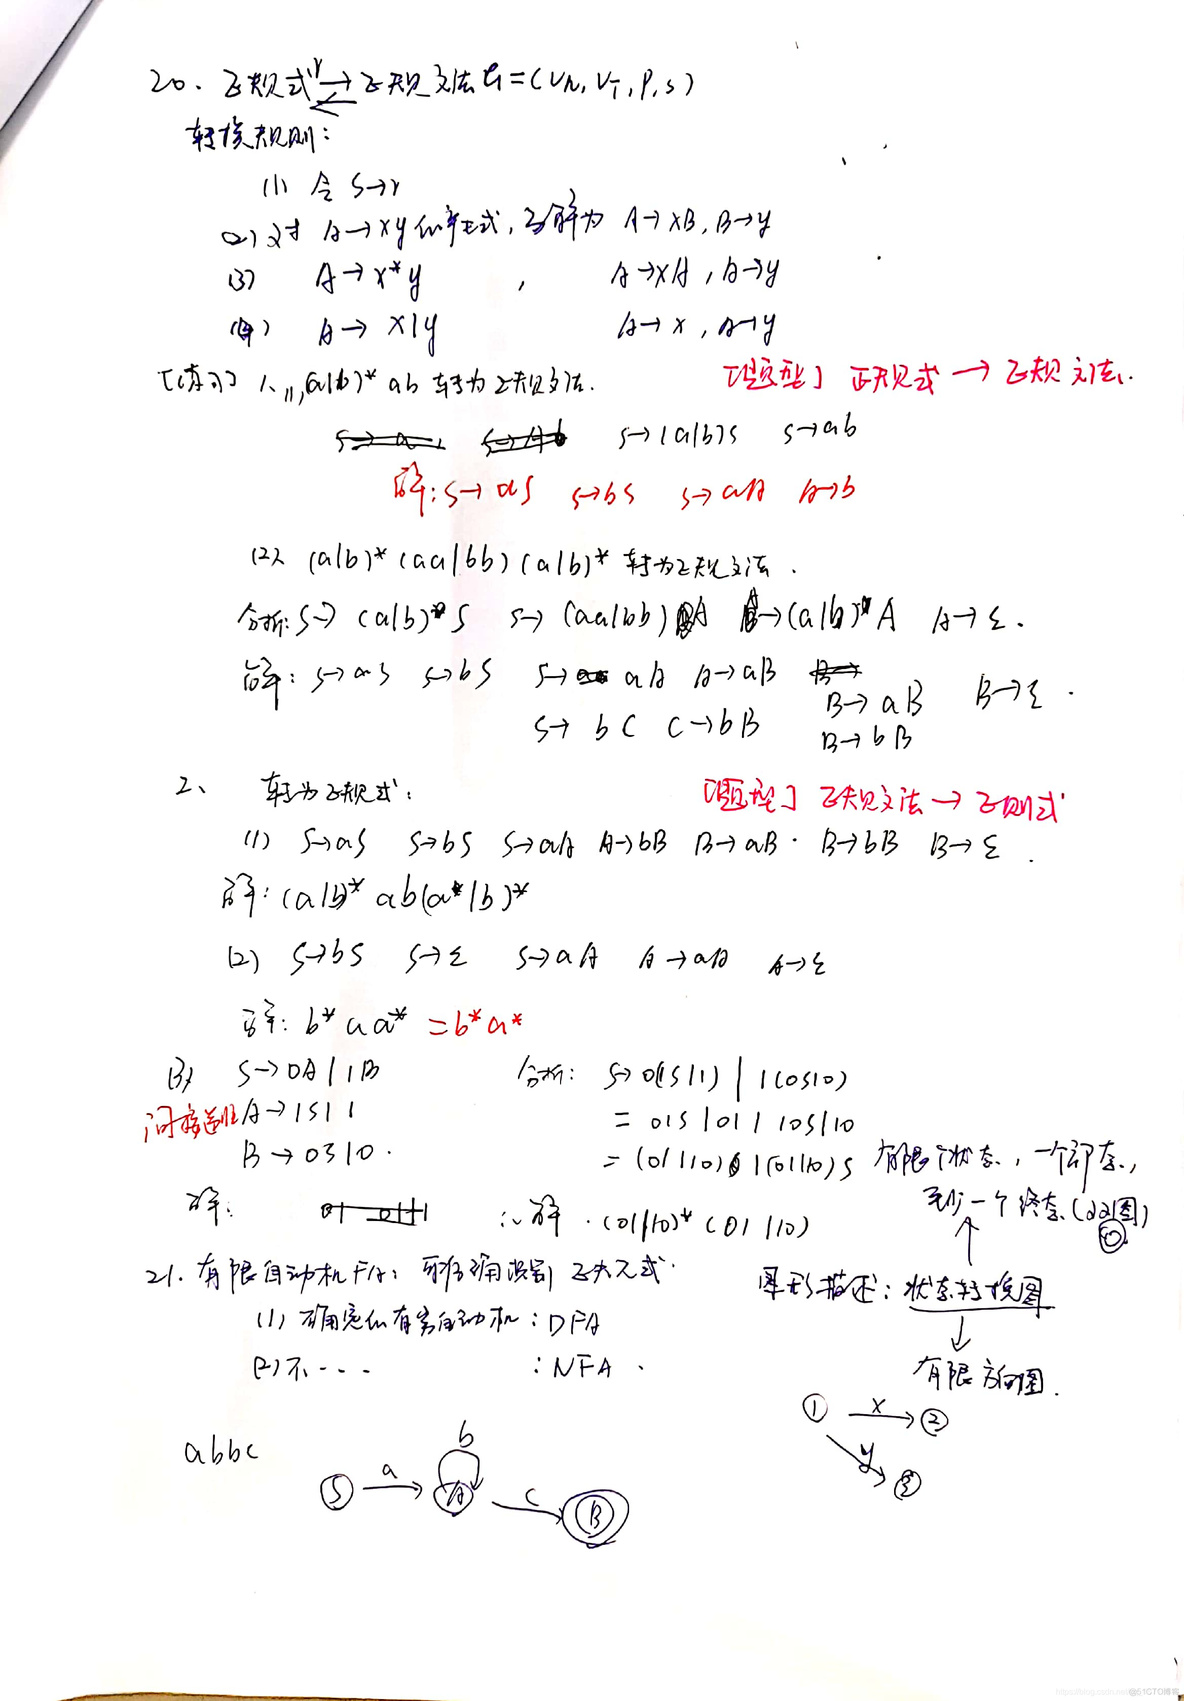 20. 正规式r⇄正规文法G=(VN, VT, P, S)
转换规则:
(1) 令 S→r
(2) 对 A→xy的产生式, 分解为 A→xB, B→y
(3) A→x*y , A→xA, A→y
(4) A→x|y A→x, A→y
[练习] 1、(1)(a|b)*ab 转为正规文法. [题型] 正规式→正规文法.
S→(a|b)S S→ab
解: S→aS S→bS S→aA A→b
(2) (a|b)*(aa|bb)(a|b)* 转为正规文法.
分析: S→(a|b)*S S→(aa|bb)A A→(a|b)*A A→ε.
解: S→aS S→bS S→aA A→aB B→aB B→ε.
S→bC C→bB B→bB
2、 转为正规式: [题型] 正规文法→正则式
(1) S→aS S→bS S→aA A→bB B→aB. B→bB B→ε.
解: (a|b)*ab(a*|b)*
(2) S→bS S→ε S→aA A→aA A→ε
解: b*aa* =b*a*
(3) S→0A|1B 分析: S→0(1S|1)|1(0S|0)
间接递归 A→1S|1 = 01S|01|10S|10
B→0S|0. = (01|10)|(01|10)S 有限个状态, 一个初态,
解: ∴解.(01|10)*(01|10) 至少一个终态(双圈)
21. 有限自动机FA: 准确识别正规式. 图形描述: 状态转换图
(1) 确定的有穷自动机: DFA
(2) 不---- : NFA. 有限方向图.
1 x 2
y 3
abbc
b
S a A c B
@51CTO博客